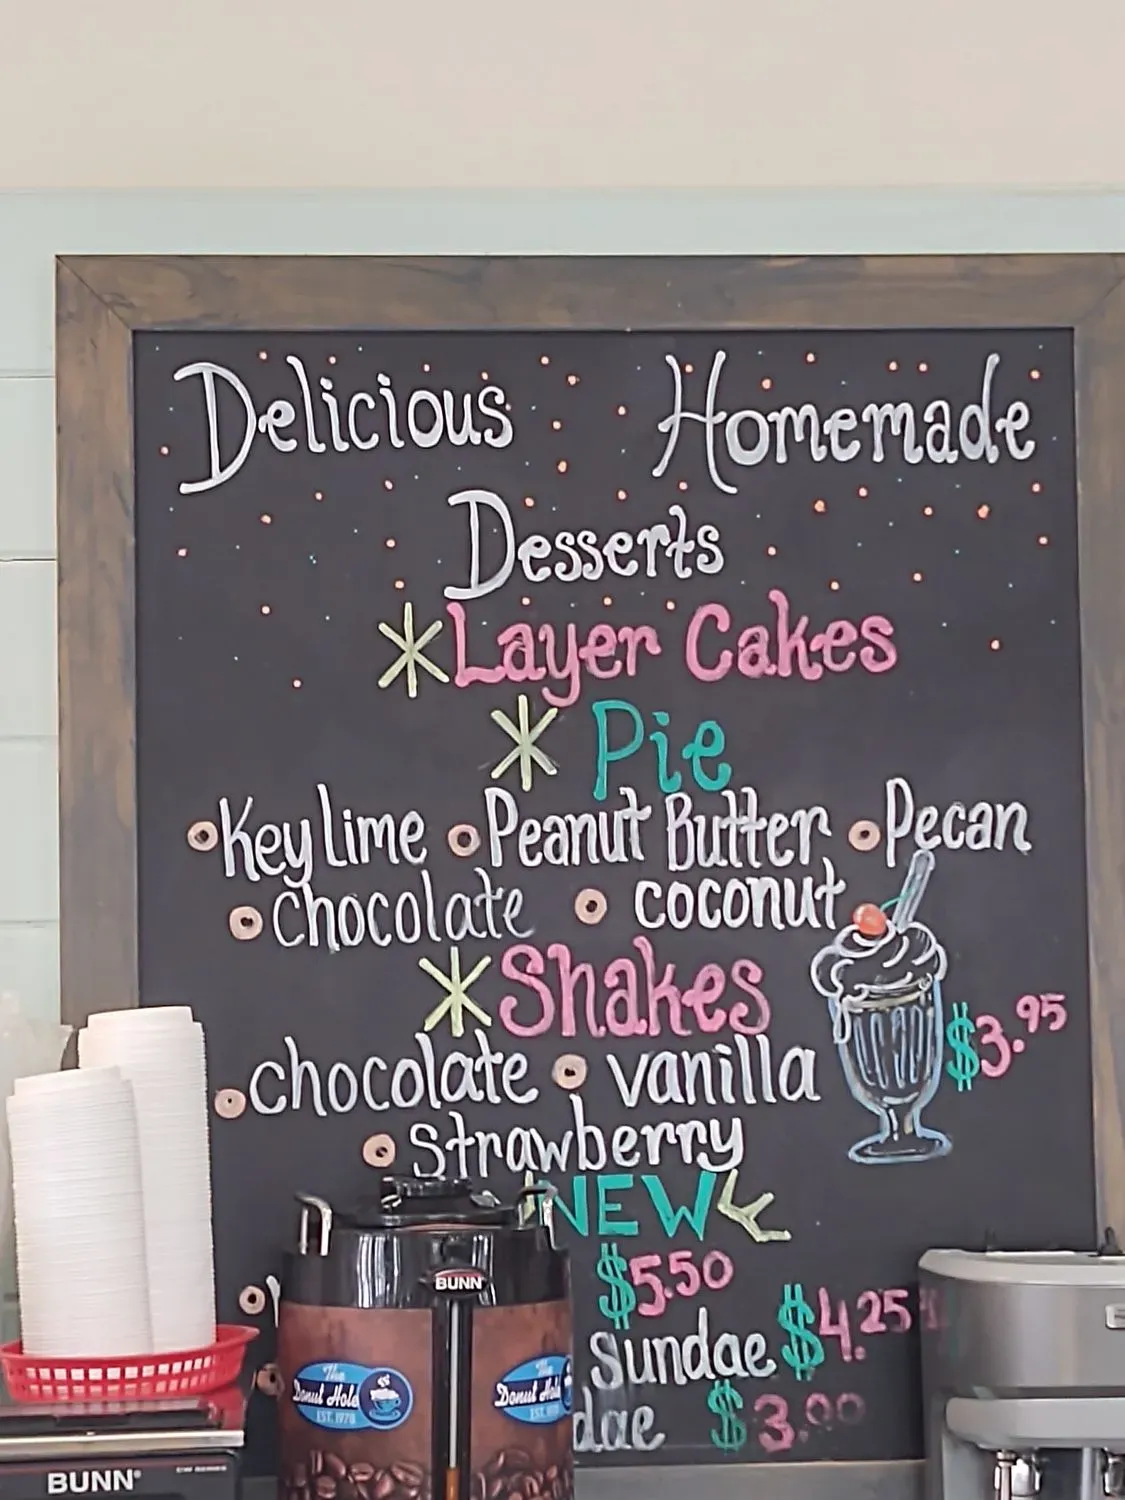 Delicious Homemade
Desserts
*Layer Cakes
* Pie
Key lime Peanut Butter Pecan
chocolate coconut
*Shakes
$3.95
chocolate vanilla
Strawberry
NEW
$5.50
Sundae $4.25
dae $3.00
BUNN
The
Donut Hole
EST. 1978
The
Donut Hole
EST.
BUNN